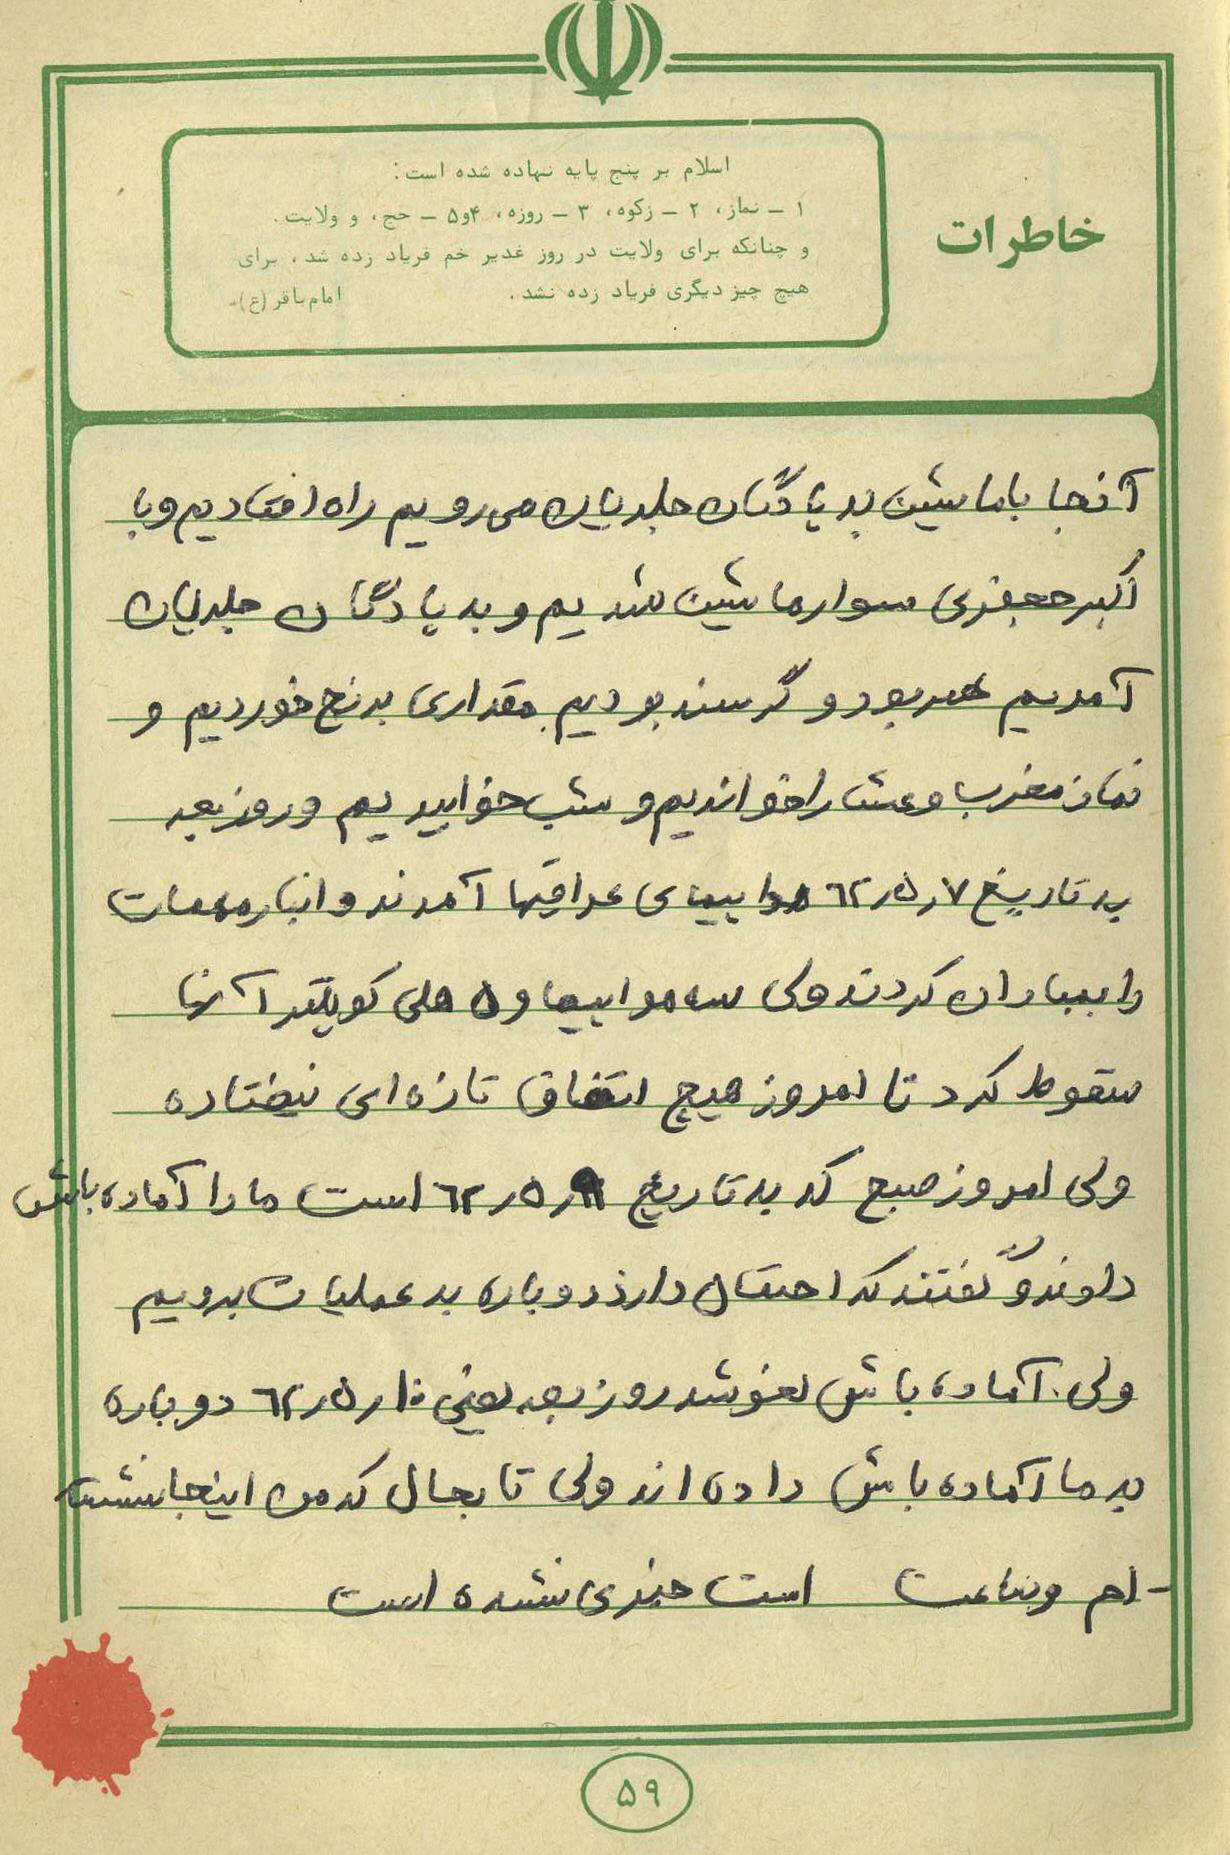 خاطرات
اسلام بر پنج پایه نهاده شده است:
۱ ـ نماز، ۲ ـ زکوه، ۳ ـ روزه، ۴و۵ ـ حج، و ولایت.
و چنانکه برای ولایت در روز غدیر خم فریاد زده شد، برای
هیچ چیز دیگری فریاد زده نشد. امام باقر (ع)
آنجا با ماشین به پادگان جلدیان می رویم راه افتادیم و با
اکبر جعفری سوار ماشین شدیم و به پادگان جلدیان
آمدیم بود و گرسنه بودیم مقداری برنج خوردیم و
نماز مغرب و عشا را خواندیم و شب خوابیدیم و روز بعد
به تاریخ ۷ر۵ر۶۲ هواپیمای عراقیها آمدند و انبار مهمات
را بمباران کردند ولی سه هواپیما و ۵ هلی کوپتر آنها
سقوط کرد تا امروز هیچ اتفاق تازه ای نیفتاده
ولی امروز صبح که به تاریخ ۹ر۵ر۶۲ است ما را آماده باش
دادند و گفتند که احتمال دارد دوباره به عملیات برویم
ولی آماده باش لغو شد روز بعد یعنی ۱۰ر۵ر۶۲ دوباره
به ما آماده باش داده اند ولی تا بحال که من اینجا نشسته
-ام و ساعت است خبری نشده است
۵۹